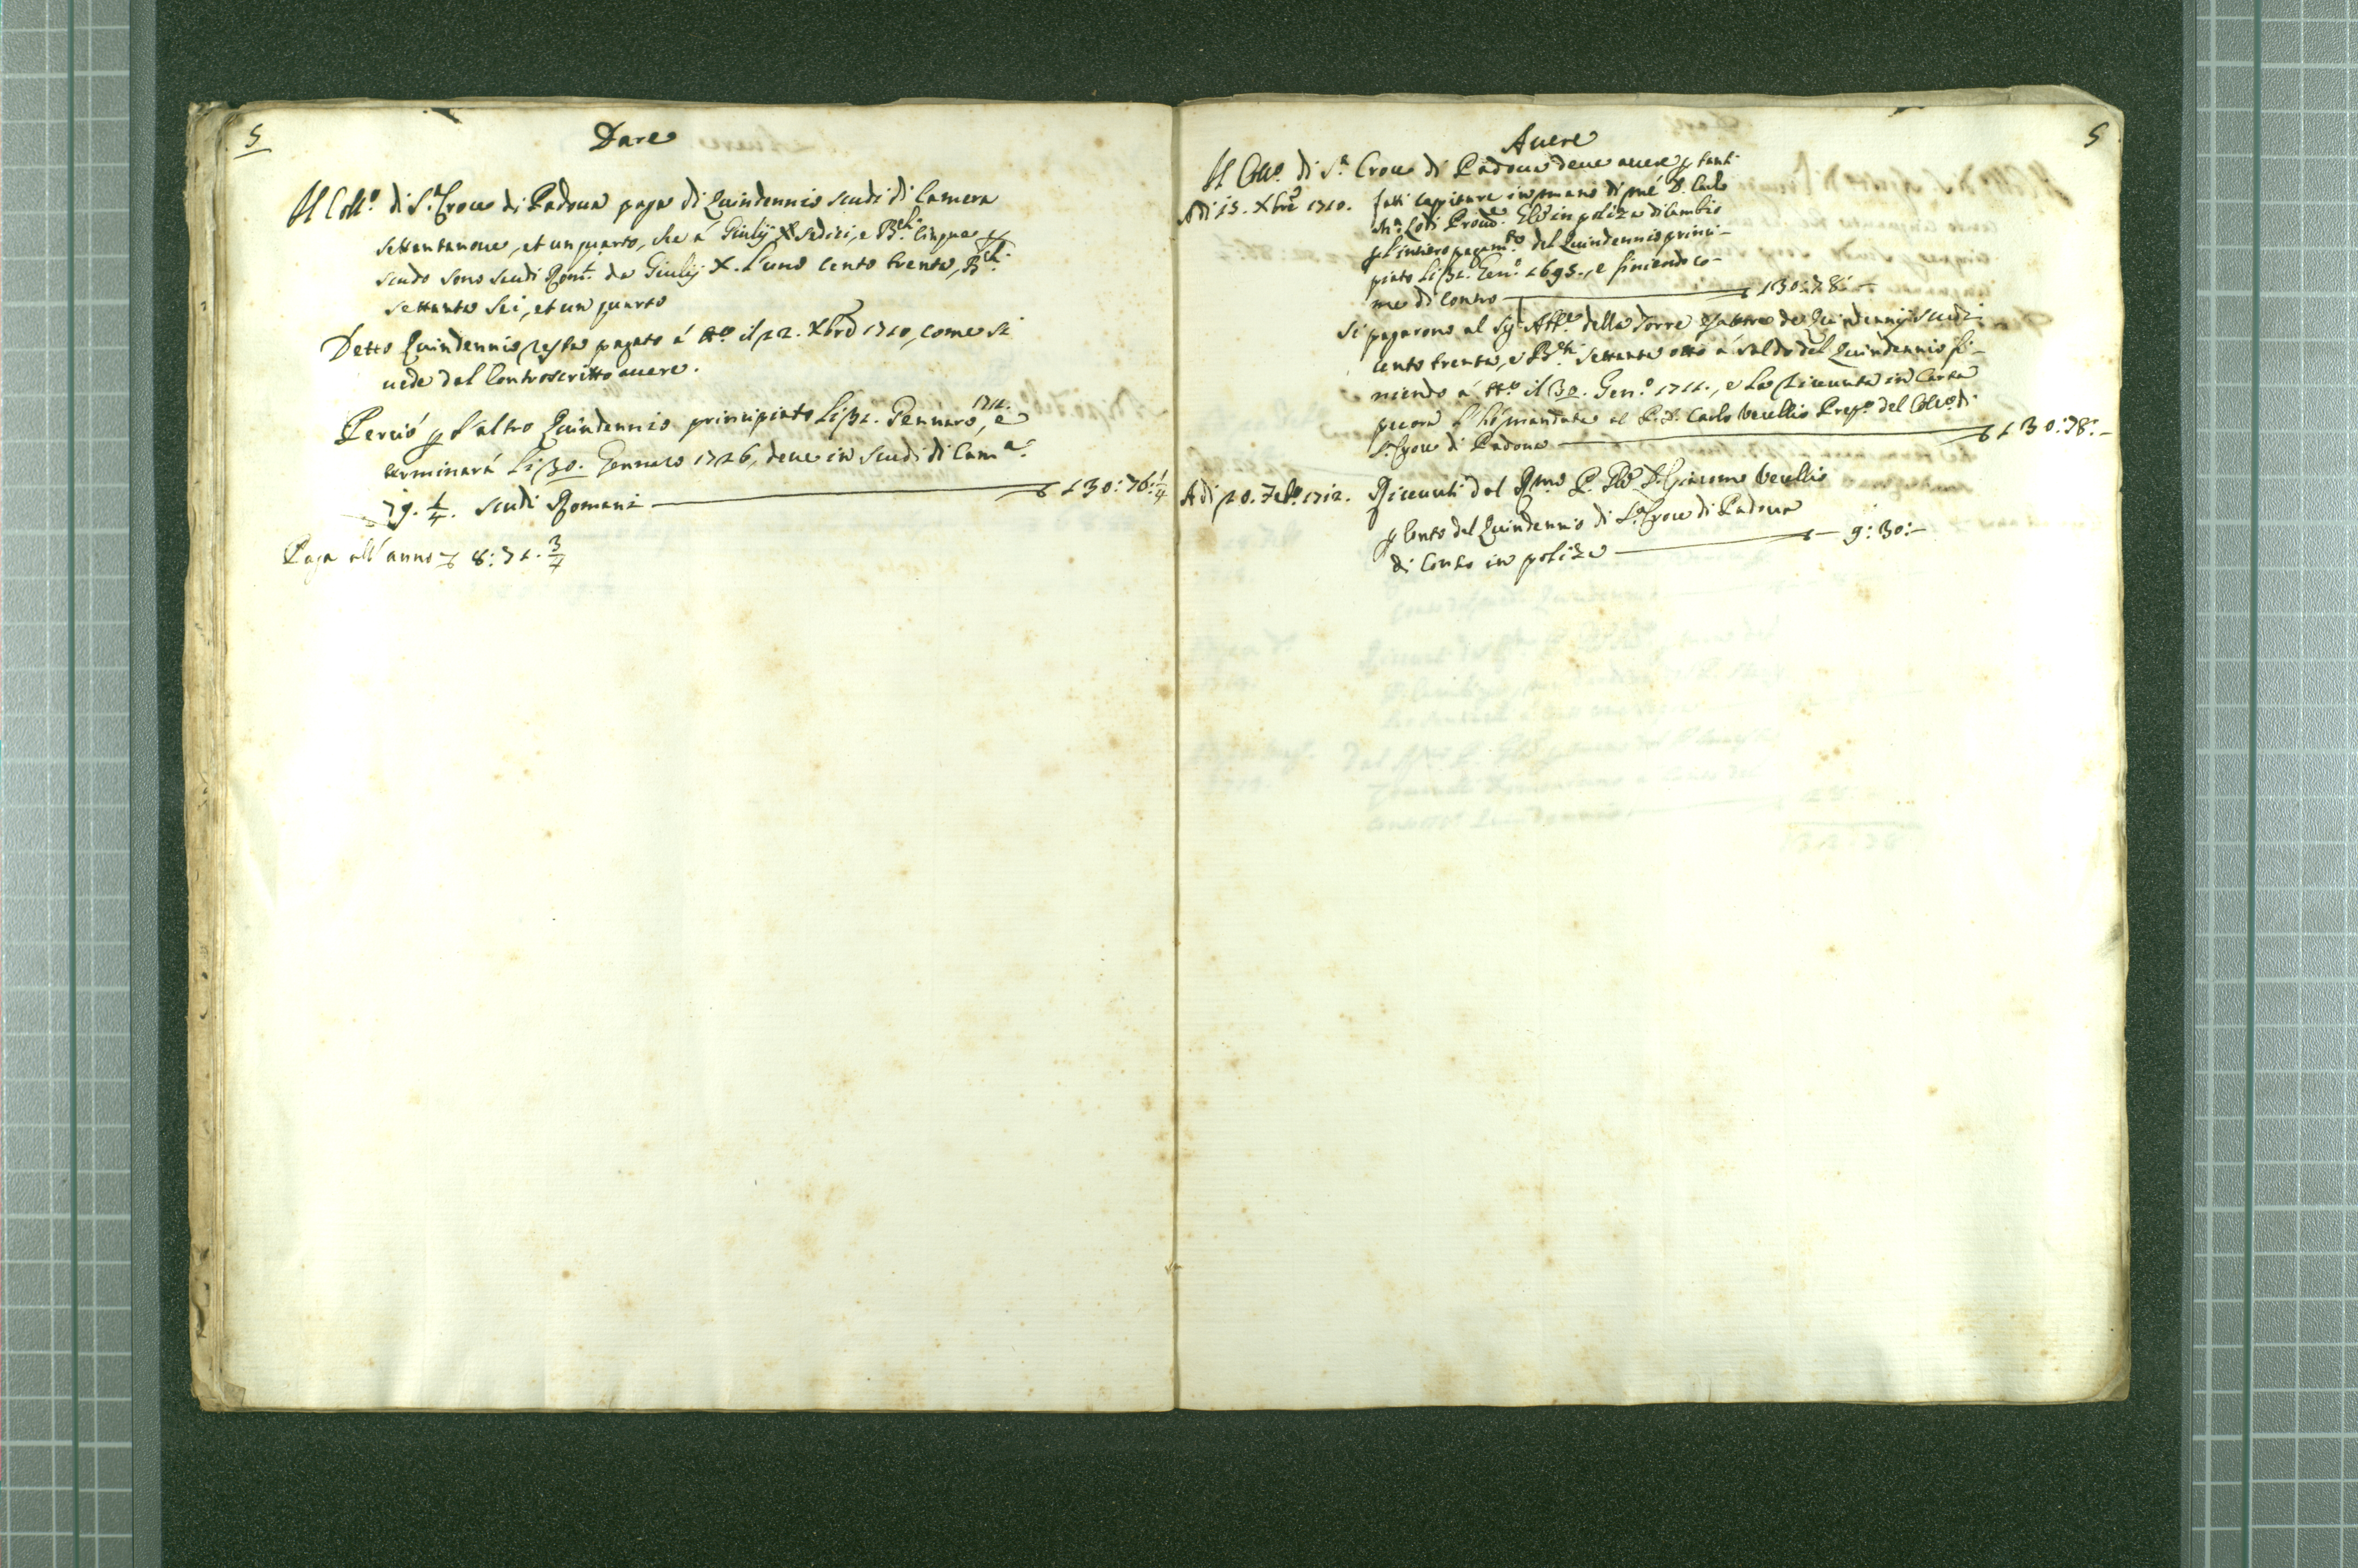 5
Dare
Il Coll.o di S.a Croce di Padoua paga di Quindennio scudi di Camera
settantanoue, et un quarto, che á Giulij sedici, e B.chi cinque p
scudo sono scudi Rom.i da Giulij X. l'uno cento trenta, B.chi
settanta sei, et un quarto
Detto Quindennio resta pagato á tt.o il 12. Xbre 1710, come si
uede dal Controscritto auere.
Perció p l'altro Quindennio principiato li 31. Gennaro 1711., e
terminará li 30. Gennaro 1726, deue in scudi di Cam.a
79. 1/4. scudi Romani 130:76 1/4
Paga all'anno 8:71. 3/4
5
Auere
Il Coll.o di S.a Croce di Padoua deue auere p tanti
Adi 15. Xbre 1710. fatti capitare in mano di mé D. Carlo
Lodi Proc. in poliza di Cambio
p l'intiero pagam.to del Quindennio princi-
piato li 31. Gen.o 1695., e finiendo co-
me di contro 130:78:-
Si pagarono al Sig. della Torre esattore de Quindennij scudi
cento trenta, e B.chi settanta otto á saldo del Quindennio fi-
niendo á tt.o il 30. Gen.o 1711., e la riceuuta in Carta
pecora l'hó mandata al P. D. Carlo Vecellio Prep.o del Coll.o di
S. Croce di Padoua 130:78:-
Adi 20. Feb.o 1712. Riceuuti dal R.mo P. D. Giacomo Vecellio
p Conto del Quindennio di S.a Croce di Padoua
di Conto in poliza 9:30:-